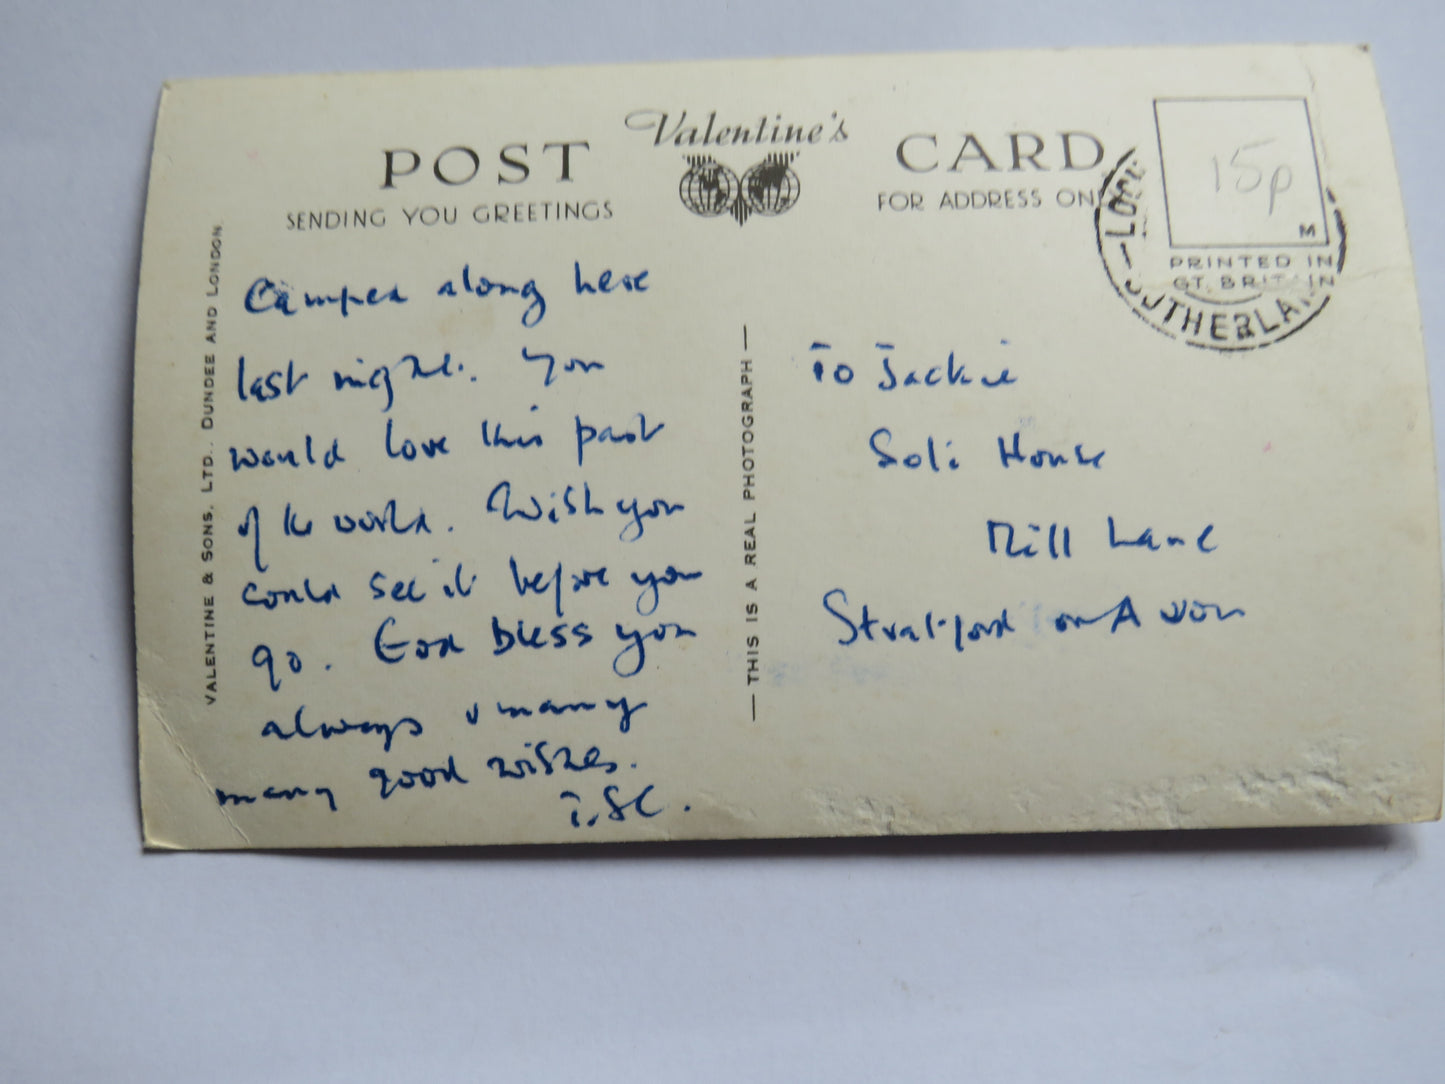 POST Valentine's CARD
SENDING YOU GREETINGS
FOR ADDRESS ON
15p
M
PRINTED IN
GT. BRITAIN
SUTHERLAND
VALENTINE & SONS, LTD., DUNDEE AND LONDON.
— THIS IS A REAL PHOTOGRAPH —
Camped along here
last night. You
would love this part
of the world. Wish you
could see it before you
go. God bless you
always & many
many good wishes.
To Jackie
Soli House
Mill Lane
Stratford on Avon